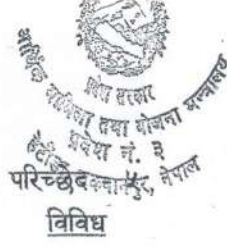 प्रदेश सरकार
आर्थिक मामिला तथा योजना मन्त्रालय
प्रदेश नं. ३
मकवानपुर, नेपाल
परिच्छेद
विविध